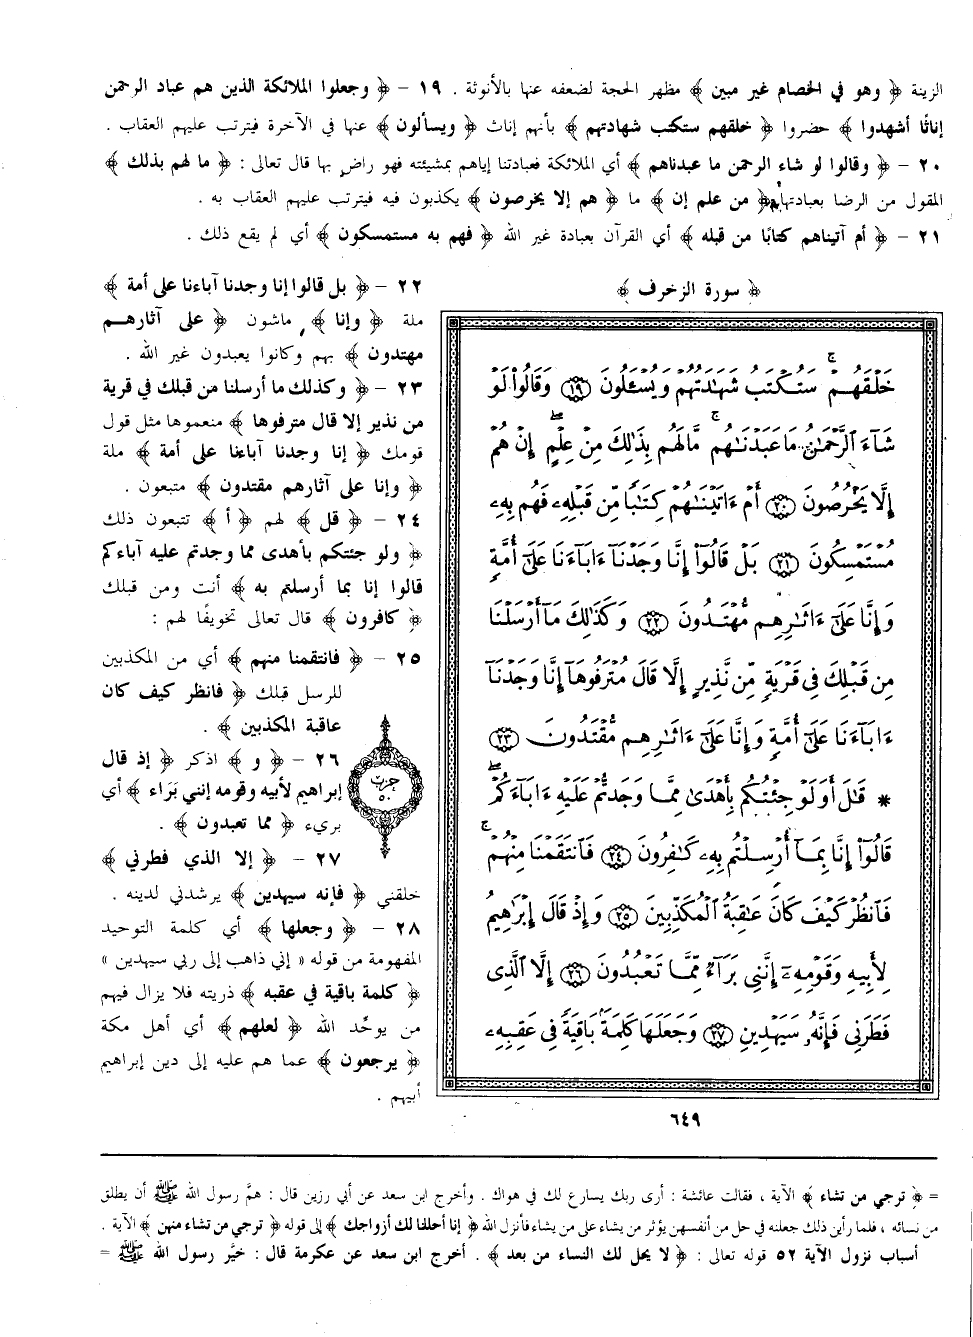 الزينة ﴿ وهو في الخصام غير مبين ﴾ مظهر الحجة لضعفه عنها بالأنوثة . ١٩ – ﴿ وجعلوا الملائكة الذين هم عباد الرحمن
إناثًا أشهدوا ﴾ حضروا ﴿ خلقهم ستكتب شهادتهم ﴾ بأنهم إناث ﴿ ويسألون ﴾ عنها في الآخرة فيترتب عليهم العقاب .
٢٠ – ﴿ وقالوا لو شاء الرحمن ما عبدناهم ﴾ أي الملائكة فعبادتنا إياهم بمشيئته فهو راضٍ بها قال تعالى : ﴿ ما لهم بذلك ﴾
المقول من الرضا بعبادتها ﴿ من علم إن ﴾ ما ﴿ هم إلا يخرصون ﴾ يكذبون فيه فيترتب عليهم العقاب به .
٢١ – ﴿ أم آتيناهم كتابًا من قبله ﴾ أي القرآن بعبادة غير الله ﴿ فهم به مستمسكون ﴾ أي لم يقع ذلك .
﴿ سورة الزخرف ﴾
خَلْقَهُمْ ۚ سَتُكْتَبُ شَهَٰدَتُهُمْ وَيُسْـَٔلُونَ ١٩ وَقَالُوا۟ لَوْ
شَآءَ ٱلرَّحْمَٰنُ مَا عَبَدْنَٰهُم ۗ مَّا لَهُم بِذَٰلِكَ مِنْ عِلْمٍ ۖ إِنْ هُمْ
إِلَّا يَخْرُصُونَ ٢٠ أَمْ ءَاتَيْنَٰهُمْ كِتَٰبًا مِّن قَبْلِهِۦ فَهُم بِهِۦ
مُسْتَمْسِكُونَ ٢١ بَلْ قَالُوٓا۟ إِنَّا وَجَدْنَآ ءَابَآءَنَا عَلَىٰٓ أُمَّةٍ
وَإِنَّا عَلَىٰٓ ءَاثَٰرِهِم مُّهْتَدُونَ ٢٢ وَكَذَٰلِكَ مَآ أَرْسَلْنَا
مِن قَبْلِكَ فِى قَرْيَةٍ مِّن نَّذِيرٍ إِلَّا قَالَ مُتْرَفُوهَآ إِنَّا وَجَدْنَآ
ءَابَآءَنَا عَلَىٰٓ أُمَّةٍ وَإِنَّا عَلَىٰٓ ءَاثَٰرِهِم مُّقْتَدُونَ ٢٣
* قَٰلَ أَوَلَوْ جِئْتُكُم بِأَهْدَىٰ مِمَّا وَجَدتُّمْ عَلَيْهِ ءَابَآءَكُمْ ۖ
قَالُوٓا۟ إِنَّا بِمَآ أُرْسِلْتُم بِهِۦ كَٰفِرُونَ ٢٤ فَٱنتَقَمْنَا مِنْهُمْ ۖ
فَٱنظُرْ كَيْفَ كَانَ عَٰقِبَةُ ٱلْمُكَذِّبِينَ ٢٥ وَإِذْ قَالَ إِبْرَٰهِيمُ
لِأَبِيهِ وَقَوْمِهِۦٓ إِنَّنِى بَرَآءٌ مِّمَّا تَعْبُدُونَ ٢٦ إِلَّا ٱلَّذِى
فَطَرَنِى فَإِنَّهُۥ سَيَهْدِينِ ٢٧ وَجَعَلَهَا كَلِمَةًۢ بَاقِيَةً فِى عَقِبِهِۦ
٦٤٩
٢٢ – ﴿ بل قالوا إنا وجدنا آباءنا على أمة ﴾
ملة ﴿ وإنا ﴾ ماشون ﴿ على آثارهم
مهتدون ﴾ بهم وكانوا يعبدون غير الله .
٢٣ – ﴿ وكذلك ما أرسلنا من قبلك في قرية
من نذير إلا قال مترفوها ﴾ منعموها مثل قول
قومك ﴿ إنا وجدنا آباءنا على أمة ﴾ ملة
﴿ وإنا على آثارهم مقتدون ﴾ متبعون .
٢٤ – ﴿ قل ﴾ لهم ﴿ أ ﴾ تتبعون ذلك
﴿ ولو جئتكم بأهدى مما وجدتم عليه آباءكم
قالوا إنا بما أرسلتم به ﴾ أنت ومن قبلك
﴿ كافرون ﴾ قال تعالى تخويفًا لهم :
٢٥ – ﴿ فانتقمنا منهم ﴾ أي من المكذبين
للرسل قبلك ﴿ فانظر كيف كان
عاقبة المكذبين ﴾ .
٢٦ – ﴿ و ﴾ اذكر ﴿ إذ قال
إبراهيم لأبيه وقومه إنني بَرَاء ﴾ أي
بريء ﴿ مما تعبدون ﴾ .
حزب
٥٠
٢٧ – ﴿ إلا الذي فطرني ﴾
خلقني ﴿ فإنه سيهدين ﴾ يرشدني لدينه .
٢٨ – ﴿ وجعلها ﴾ أي كلمة التوحيد
المفهومة من قوله « إني ذاهب إلى ربي سيهدين »
﴿ كلمة باقية في عقبه ﴾ ذريته فلا يزال فيهم
من يوحِّد الله ﴿ لعلهم ﴾ أي أهل مكة
﴿ يرجعون ﴾ عما هم عليه إلى دين إبراهيم
أبيهم .
= ﴿ ترجي من تشاء ﴾ الآية ، فقالت عائشة : أرى ربك يسارع لك في هواك . وأخرج ابن سعد عن أبي رزين قال : همَّ رسول الله ﷺ أن يطلق
من نسائه ، فلما رأين ذلك جعلنه في حل من أنفسهن يؤثر من يشاء على من يشاء فأنزل الله ﴿ إنا أحللنا لك أزواجك ﴾ إلى قوله ﴿ ترجي من تشاء منهن ﴾ الآية .
أسباب نزول الآية ٥٢ قوله تعالى : ﴿ لا يحل لك النساء من بعد ﴾ . أخرج ابن سعد عن عكرمة قال : خيَّر رسول الله ﷺ =